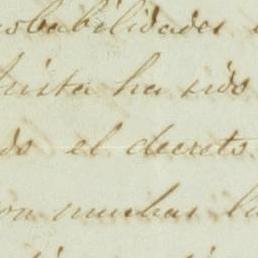 obabilidades
trista ha sido
do el decreto
on muchas